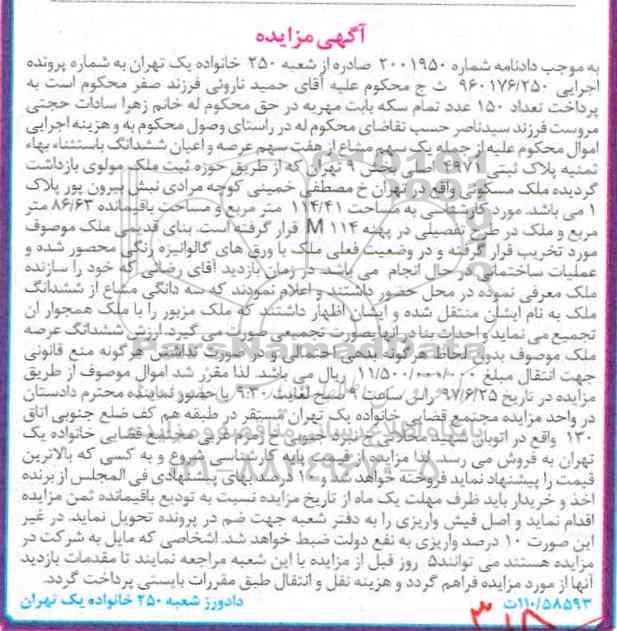 آگهی مزایده
به موجب دادنامه شماره ۲۰۰۱۹۵۰ صادره از شعبه ۲۵۰ خانواده یک تهران به شماره پرونده
اجرایی ۹۶۰۱۷۶/۲۵۰ ث ج محکوم علیه آقای حمید ناروئی فرزند صفر محکوم است به
پرداخت تعداد ۱۵۰ عدد تمام سکه بابت مهریه در حق محکوم له خانم زهرا سادات حجتی
مروست فرزند سیدناصر حسب تقاضای محکوم له در راستای وصول محکوم به و هزینه اجرایی
اموال محکوم علیه از جمله یک سهم مشاع از هفت سهم عرصه و اعیان ششدانگ باستثناء بهاء
ثمنیه پلاک ثبتی ۴۹۷۱ اصلی بخش ۹ تهران که از طریق حوزه ثبت ملک مولوی بازداشت
گردیده ملک مسکونی واقع در تهران خ مصطفی خمینی کوچه مرادی نبش بیرون پور پلاک
۱ می باشد. مورد کارشناسی به مساحت ۱۱۴/۴۱ متر مربع و مساحت باقیمانده ۸۶/۶۳ متر
مربع و ملک در طرح تفصیلی در پهنه M ۱۱۴ قرار گرفته است. بنای قدیمی ملک موصوف
مورد تخریب قرار گرفته و در وضعیت فعلی ملک با ورق های گالوانیزه رنگی محصور شده و
عملیات ساختمانی در حال انجام می باشد. در زمان بازدید آقای رضائی که خود را سازنده
ملک معرفی نموده در محل حضور داشتند و اعلام نمودند که سه دانگی مشاع از ششدانگ
ملک به نام ایشان منتقل شده و ایشان اظهار داشتند که ملک مزبور را با ملک همجوار ان
تجمیع می نماید و احداث بنا در آنها بصورت تجمیعی صورت می گیرد. ارزش ششدانگ عرصه
ملک موصوف بدون لحاظ هرگونه بدهی احتمالی و در صورت نداشتن هرگونه منع قانونی
جهت انتقال مبلغ ریال می باشد. لذا مقرر شد اموال موصوف از طریق
مزایده در تاریخ ۹۷/۶/۲۵ راس ساعت ۹ صبح لغایت ۹:۳۰ با حضور نماینده محترم دادستان
در واحد مزایده مجتمع قضایی خانواده یک تهران مستقر در طبقه هم کف ضلع جنوبی اتاق
۱۳۰ واقع در اتوبان شهید محلاتی خ نبرد جنوبی خ زمزم غربی مجتمع قضایی خانواده یک
تهران به فروش می رسد. لذا مزایده از قیمت پایه کارشناسی شروع و به کسی که بالاترین
قیمت را پیشنهاد نماید فروخته خواهد شد و ۱۰ درصد بهای پیشنهادی فی المجلس از برنده
اخذ و خریدار باید ظرف مهلت یک ماه از تاریخ مزایده نسبت به تودیع باقیمانده ثمن مزایده
اقدام نماید و اصل فیش واریزی را به دفتر شعبه جهت ضم در پرونده تحویل نماید. در غیر
این صورت ۱۰ درصد واریزی به نفع دولت ضبط خواهد شد. اشخاصی که مایل به شرکت در
مزایده هستند می توانند۵ روز قبل از مزایده با این شعبه مراجعه نمایند تا مقدمات بازدید
آنها از مورد مزایده فراهم گردد و هزینه نقل و انتقال طبق مقررات بایستی پرداخت گردد.
۱۱۰/۵۸۵۹۳ت دادورز شعبه ۲۵۰ خانواده یک تهران